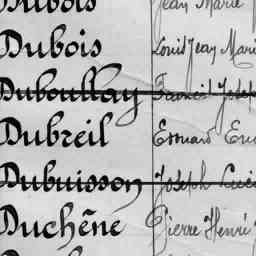 Dubois Jean Marie
Dubois Louis Jean Mari
Duboullay Francis Josep
Dubreil Edouard Eug
Dubuisson Joseph Luci
Duchêne Pierre Henri